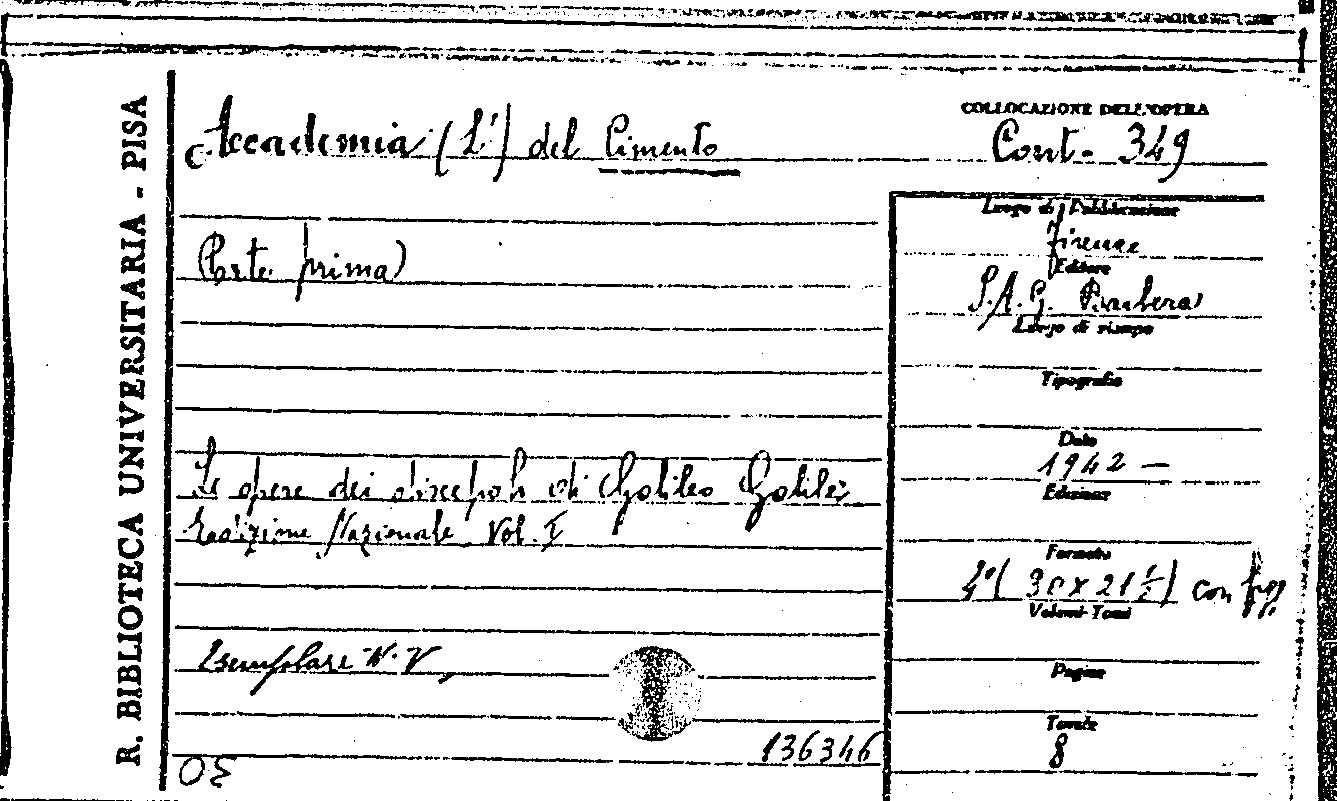 R. BIBLIOTECA UNIVERSITARIA - PISA
Accademia (L') del Cimento
Parte prima
Le opere dei discepoli di Galileo Galilei
Edizione Nazionale Vol. I
Esemplare N. V
136346
COLLOCAZIONE DELL'OPERA
Cont. 349
Luogo di Pubblicazione
Firenze
Editore
S.A.G. Barbera
Luogo di stampa
Tipografia
Data
1942 —
Edizione
Formato
4°( 30 x 21 ½) con figg
Volumi-Tomi
Pagine
Tavole
8